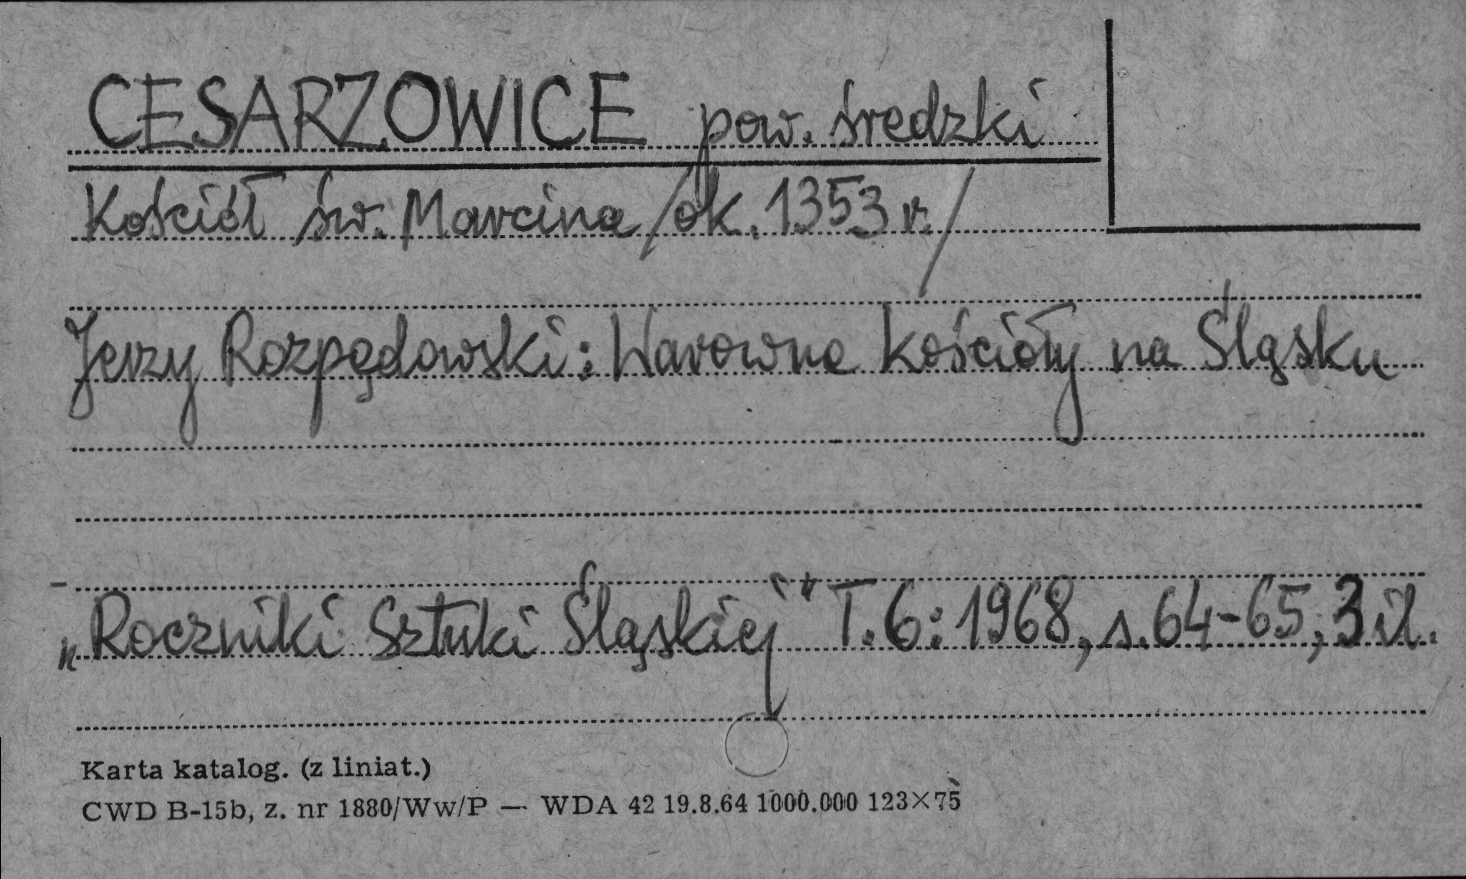 CESARZOWICE pow. średzki
Kościół św. Marcina /ok. 1353 r./
Jerzy Rozpędowski: Warowne kościoły na Śląsku
„Roczniki Sztuki Śląskiej" T.6: 1968, s.64-65, 3 il.
Karta katalog. (z liniat.)
CWD B-15b, z. nr 1880/Ww/P — WDA 42 19.8.64 1000.000 123×75